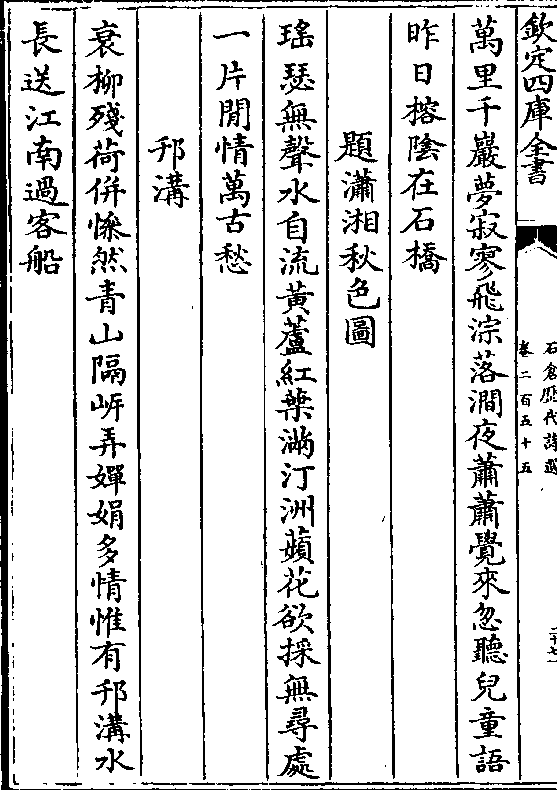 欽定四庫全書
石倉歷代詩選
卷二百五十五
二十七
萬里千巖夢寂寥飛淙落澗夜蕭蕭覺來忽聽兒童語
昨日榕陰在石橋
題瀟湘秋色圖
瑤瑟無聲水自流黃蘆紅葉滿汀洲蘋花欲採無尋處
一片閒情萬古愁
邗溝
衰柳殘荷併慘然青山隔岍弄嬋娟多情惟有邗溝水
長送江南過客船